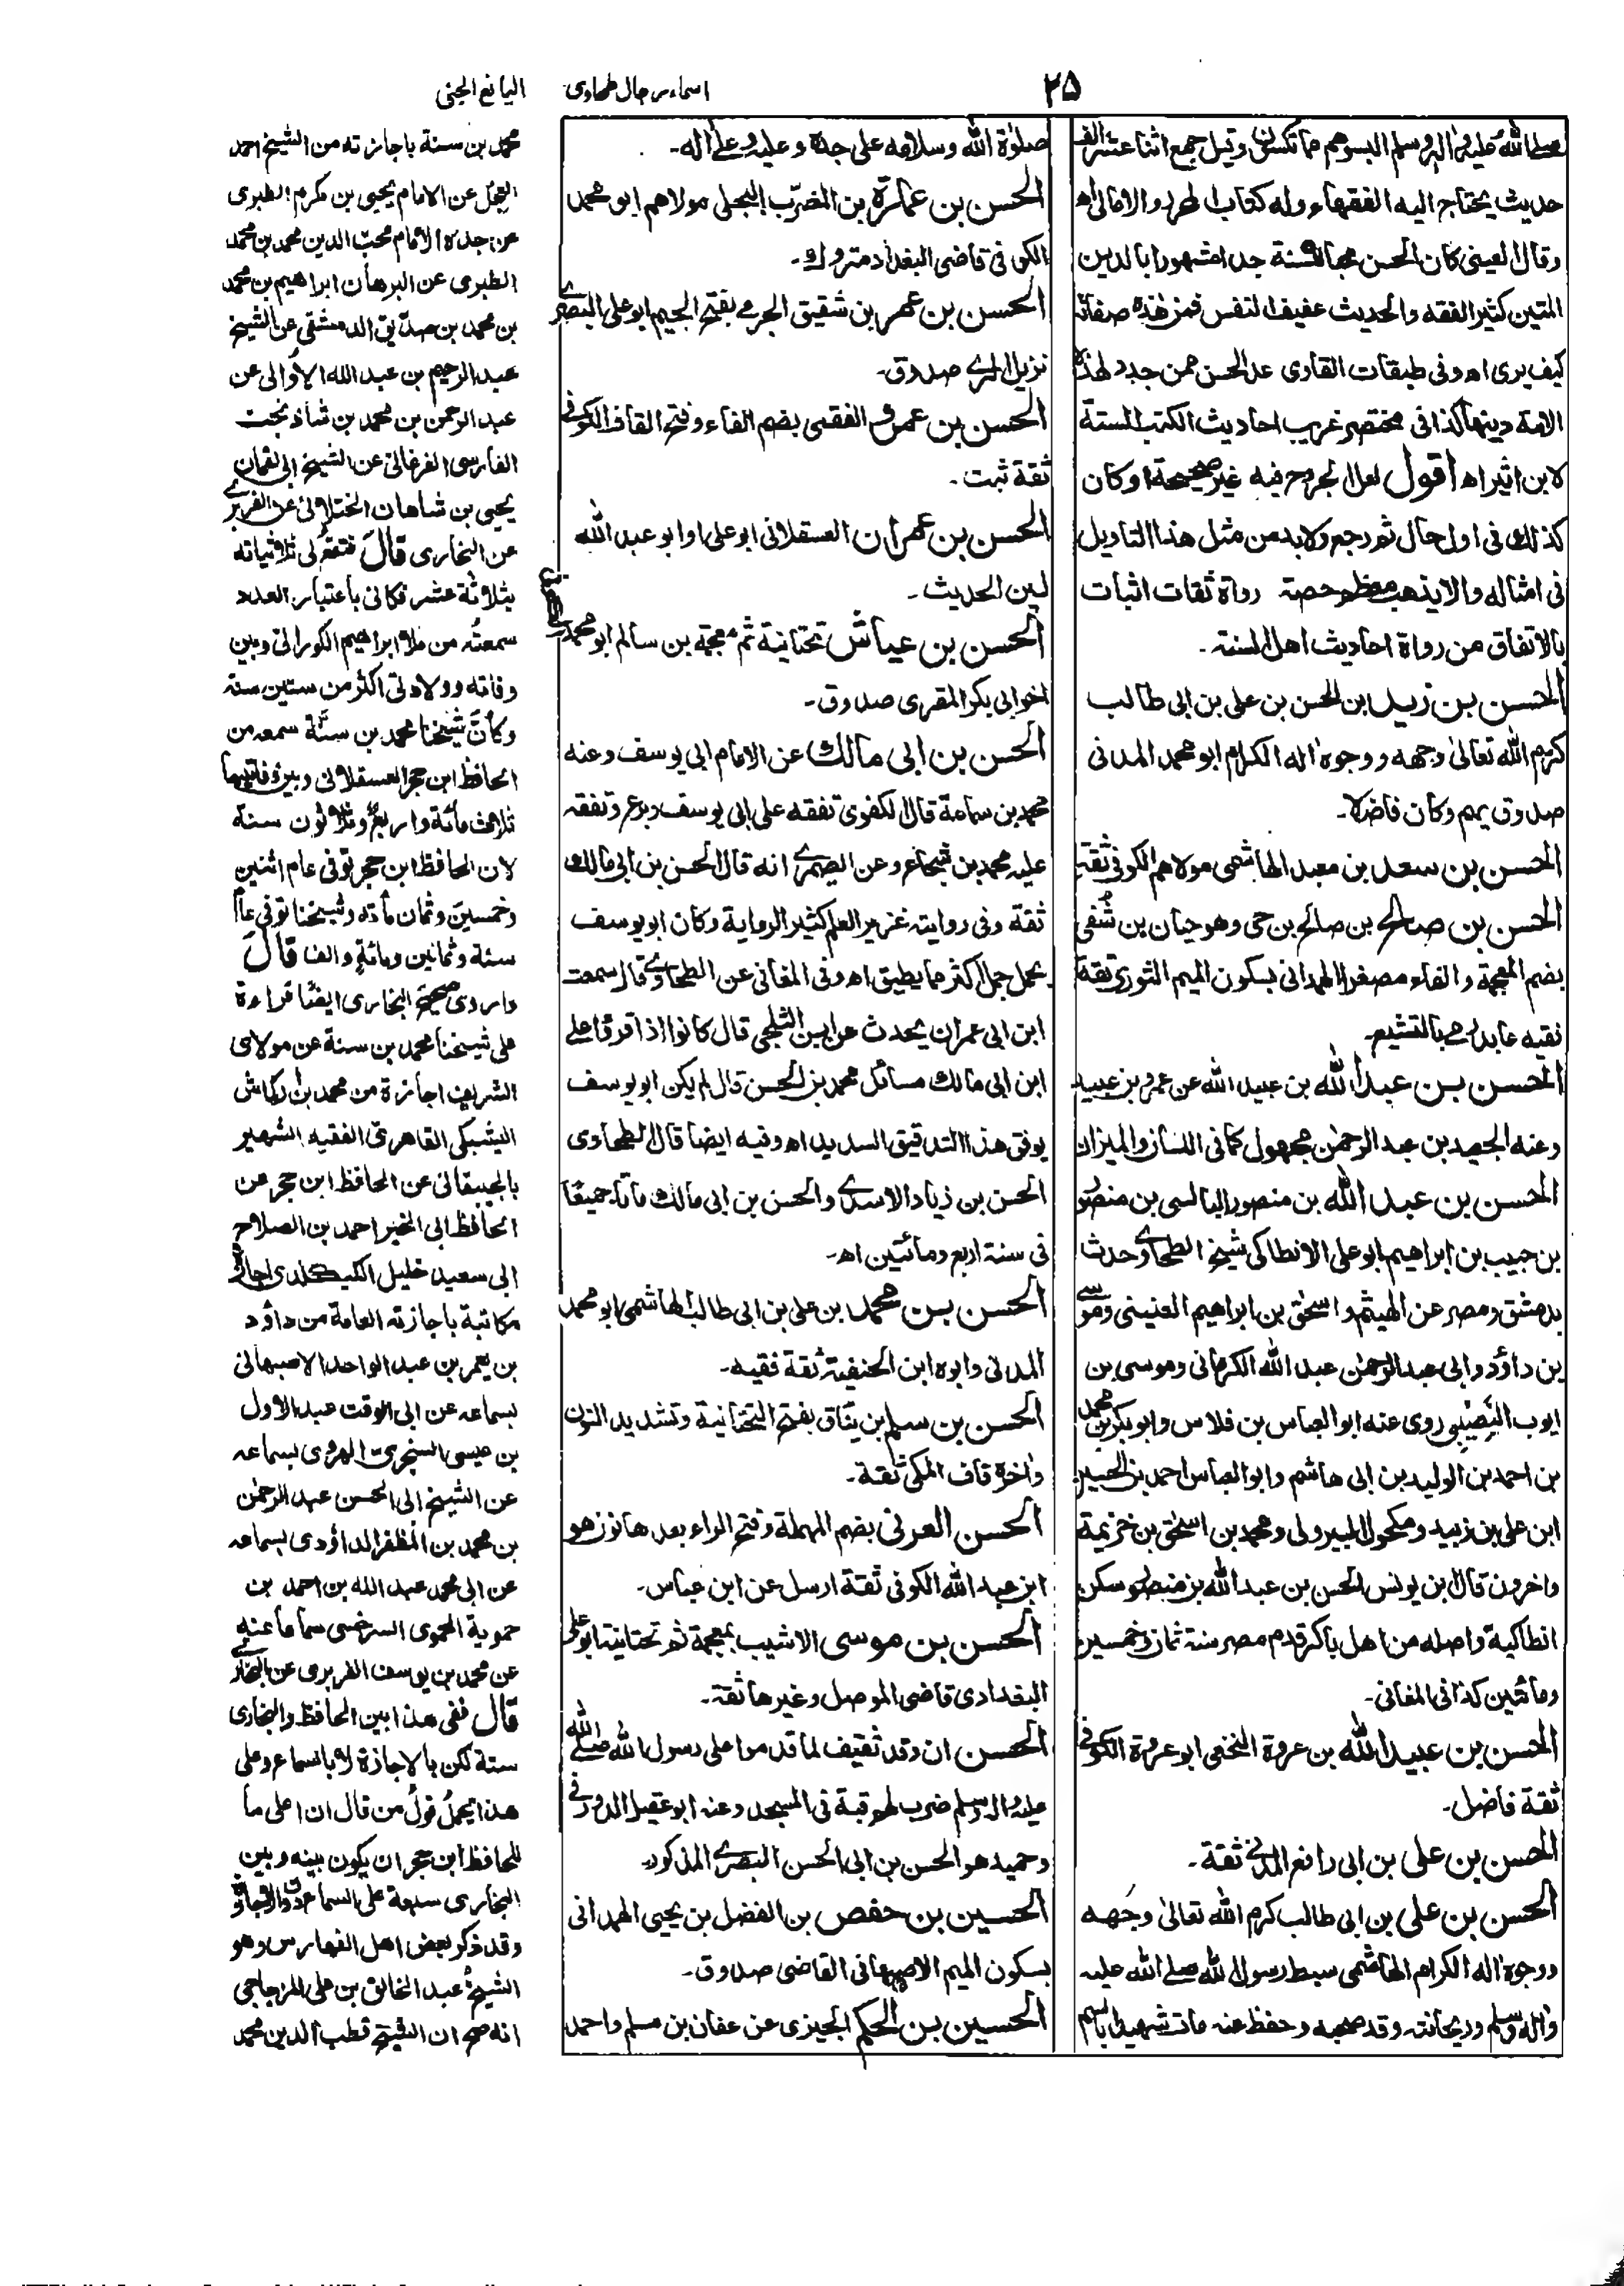 ۲۵
اسماء رجال طحاوی
اليانع الجنی
صلی الله عليه واله وسلم البسوهم مما تكسون وقيل جمع اثنا عشر الف
حديث يحتاج اليه الفقهاء وله كتاب المجرد والامالی اه
وقال العينی كان الحسن محبا للسنة جدا مشهورا بالدين
المتين كثير الفقه والحديث عفيف النفس فمن هذه صفاته
كيف يرى اه وفی طبقات القاری عد الحسن ممن جدد لهذه
الامة دينها كذا فی مختصر غريب احاديث الكتب الستة
لابن اثير اه اقول لعل الجروح فيه غير صحيحة او كان
كذلك فی اول حال ثم رجع ولابد من مثل هذا التاويل
فی امثاله والا يذهب معظم حصة رواة ثقات اثبات
بالاتفاق من رواة احاديث اهل السنة ۔
الحسن بن زيد ابن الحسن بن علی بن ابی طالب
كرم الله تعالى وجهه ووجوه اله الكرام ابو محمد المدنی
صدوق يهم وكان فاضلا۔
الحسن بن سعد بن معبد الهاشمی مولاهم الكوفی ثقة
الحسن بن صالح بن صالح بن حی وهو حيان بن شفی
بضم المعجمة والفاء مصغرا الهمدانی بسكون الميم الثوری ثقة
فقيه عابد رمی بالتشيع۔
الحسن بن عبد الله بن عبيد الله عن عمرو بن عبيد
وعنه الجعيد بن عبد الرحمن مجهول كما فی اللسان والميزان
الحسن بن عبد الله بن منصور البالسی بن منصور
بن حبيب بن ابراهيم ابو علی الانطاكی شيخ الطحاوی وحدث
بدمشق ومصر عن الهيثم واسحق بن ابراهيم الحنينی وموسی
بن داؤد وابی عبد الرحمن عبد الله الكرمانی وموسى بن
ايوب النصيبی روى عنه ابو العباس بن فلاس وابو بكر بن محمد
بن احمد بن الوليد بن ابی هاشم وابو العباس احمد بن الحسين
ابن علی بن زبيد ومكحول البيروتی ومحمد بن اسحق بن خزيمة
واخرون قال ابن يونس الحسن بن عبد الله بن منصور سكن
انطاكية واصله من اهل بالس قدم مصر سنة ثمان وخمسين
ومائتين كذا فی المغانی۔
الحسن بن عبيد الله بن عروة النخعی ابو عروة الكوفی
ثقة فاضل۔
الحسن بن علی بن ابی رافع المدنی ثقة ۔
الحسن بن علی بن ابی طالب كرم الله تعالى وجهه
ووجوه اله الكرام الهاشمی سبط رسول الله صلى الله عليه
واله وسلم وريحانته وقد صحبه وحفظ عنه مات شهيدا بالسم
صلوة الله وسلامه على جده وعليه وعلى اله۔
الحسن بن عمارة بن المضرب البجلی مولاهم ابو محمد
الكوفی قاضی البغداد متروك۔
الحسن بن عمر بن شقيق الجرمی بفتح الجيم ابو علی البصری
نزيل الری صدوق۔
الحسن بن عمرو الفقيمی بضم الفاء وفتح القاف الكوفی
ثقة ثبت ۔
الحسن بن عمران العسقلانی ابو علی او ابو عبد الله
لين الحديث ۔
الحسن بن عياش بتحتانية ثم معجمة بن سالم ابو محمد
اخو ابی بكر المقری صدوق۔
الحسن بن ابی مالك عن الامام ابی يوسف وعنه
محمد بن سماعة قال الكفوی تفقه على ابی يوسف وبرع وتفقه
عليه محمد بن شجاع وعن الصيمری انه قال الحسن بن ابی مالك
ثقة وفی روايته غزير العلم كثير الرواية وكان ابو يوسف
يحمل جمل اكثر مما يطيق اه وفی المغانی عن الطحاوی قال سمعت
ابن ابی عمران يحدث عن ابن الثلجی قال كانوا اذا قرؤا على
ابن ابی مالك مسائل محمد بن الحسن قال لم يكن ابو يوسف
يوفق هذا التدقيق السديد اه وفيه ايضا قال الطحاوی
الحسن بن زياد الاسدی والحسن بن ابی مالك ماتا جميعا
فی سنة اربع ومائتين اه۔
الحسن بن محمد بن علی بن ابی طالب الهاشمی ابو محمد
المدنی وابوه ابن الحنفية ثقة فقيه۔
الحسن بن مسلم بن يناق بفتح التحتانية وتشديد النون
واخره قاف المكی ثقة۔
الحسن العرنی بضم المهملة وفتح الراء بعدها نون هو
ابن عبد الله الكوفی ثقة ارسل عن ابن عباس۔
الحسن بن موسى الاشيب بمعجمة ثم تحتانية ابو علی
البغدادی قاضی الموصل وغيرها ثقة۔
الحسن ان وفد ثقيف لما قدموا على رسول الله صلى الله
عليه واله وسلم ضرب لهم قبة فی المسجد وعنه ابو عقيل الدورقی
وحميد هو الحسن بن ابی الحسن البصری المذكور۔
الحسين بن حفص بن الفضل بن يحيى الهمدانی
بسكون الميم الاصبهانی القاضی صدوق۔
الحسين بن الحكم الجيزی عن عفان بن مسلم واحمد
محمد بن سنة باجازته من الشيخ احمد
العجل عن الامام يحيى بن مكرم الطبری
عن جده الامام محب الدين محمد بن محمد
الطبری عن البرهان ابراهيم بن محمد
بن محمد بن صديق الدمشقی عن الشيخ
عبد الرحيم بن عبد الله الاوالی عن
عبد الرحمن بن محمد بن شاذ بخت
الفارسی الفرغانی عن الشيخ ابی لقمان
يحيى بن شاهان الختلانی عن الفربری
عن البخاری قال فتقع لی ثلاثياته
بثلاثة عشر فكانی باعتبار العدد
سمعته من ملا ابراهيم الكورانی وبين
وفاته وولادتی اكثر من ستين سنة
وكان شيخنا محمد بن سنة سمعه من
الحافظ ابن حجر العسقلانی وبين وفاتيهما
ثلاث مائة واربع وثلاثون سنة
لان الحافظ ابن حجر توفی عام اثنين
وخمسين وثمان مأته وشيخنا توفی عام
ستة وثمانين ومائة والف قال
واروی صحيح البخاری ايضا قراءة
على شيخنا محمد بن سنة عن مولای
الشريف اجازة من محمد بن اركماش
اليشبكی القاهری الفقيه الشهير
عن الحافظ ابن حجر عن
الحافظ ابی الخير احمد بن الصلاح
ابی سعيد خليل الكيكلدی اجازة
مكاتبة باجازته العامة من داؤد
بن معمر بن عبد الواحد الاصبهانی
بسماعه عن ابی الوقت عبد الاول
بن عيسى السنجری الهروی بسماعه
عن الشيخ ابی الحسن عبد الرحمن
بن محمد بن المظفر الداؤدی بسماعه
عن ابی محمد عبد الله بن احمد بن
حموية الحموی السرخسی سماعا عنه
عن محمد بن يوسف الفربری عن البخاری
قال ففی هذا بين الحافظ والبخاری
ستة لكن بالاجازة لا بالسماع وعلى
هذا يحمل قول من قال ان اعلى ما
للحافظ ابن حجر ان يكون بينه وبين
البخاری سبعة على السماع والاجازة
وقد ذكر بعض اهل الفهارس وهو
الشيخ عبد الخالق بن علی المزجاجی
انه صح ان الشيخ قطب الدين محمد